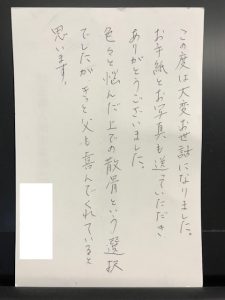 この度は大変お世話になりました。
お手紙とお写真も送っていただき
ありがとうございました。
色々と悩んだ上での散骨という選択
でしたが きっと父も喜んでくれていると
思います。